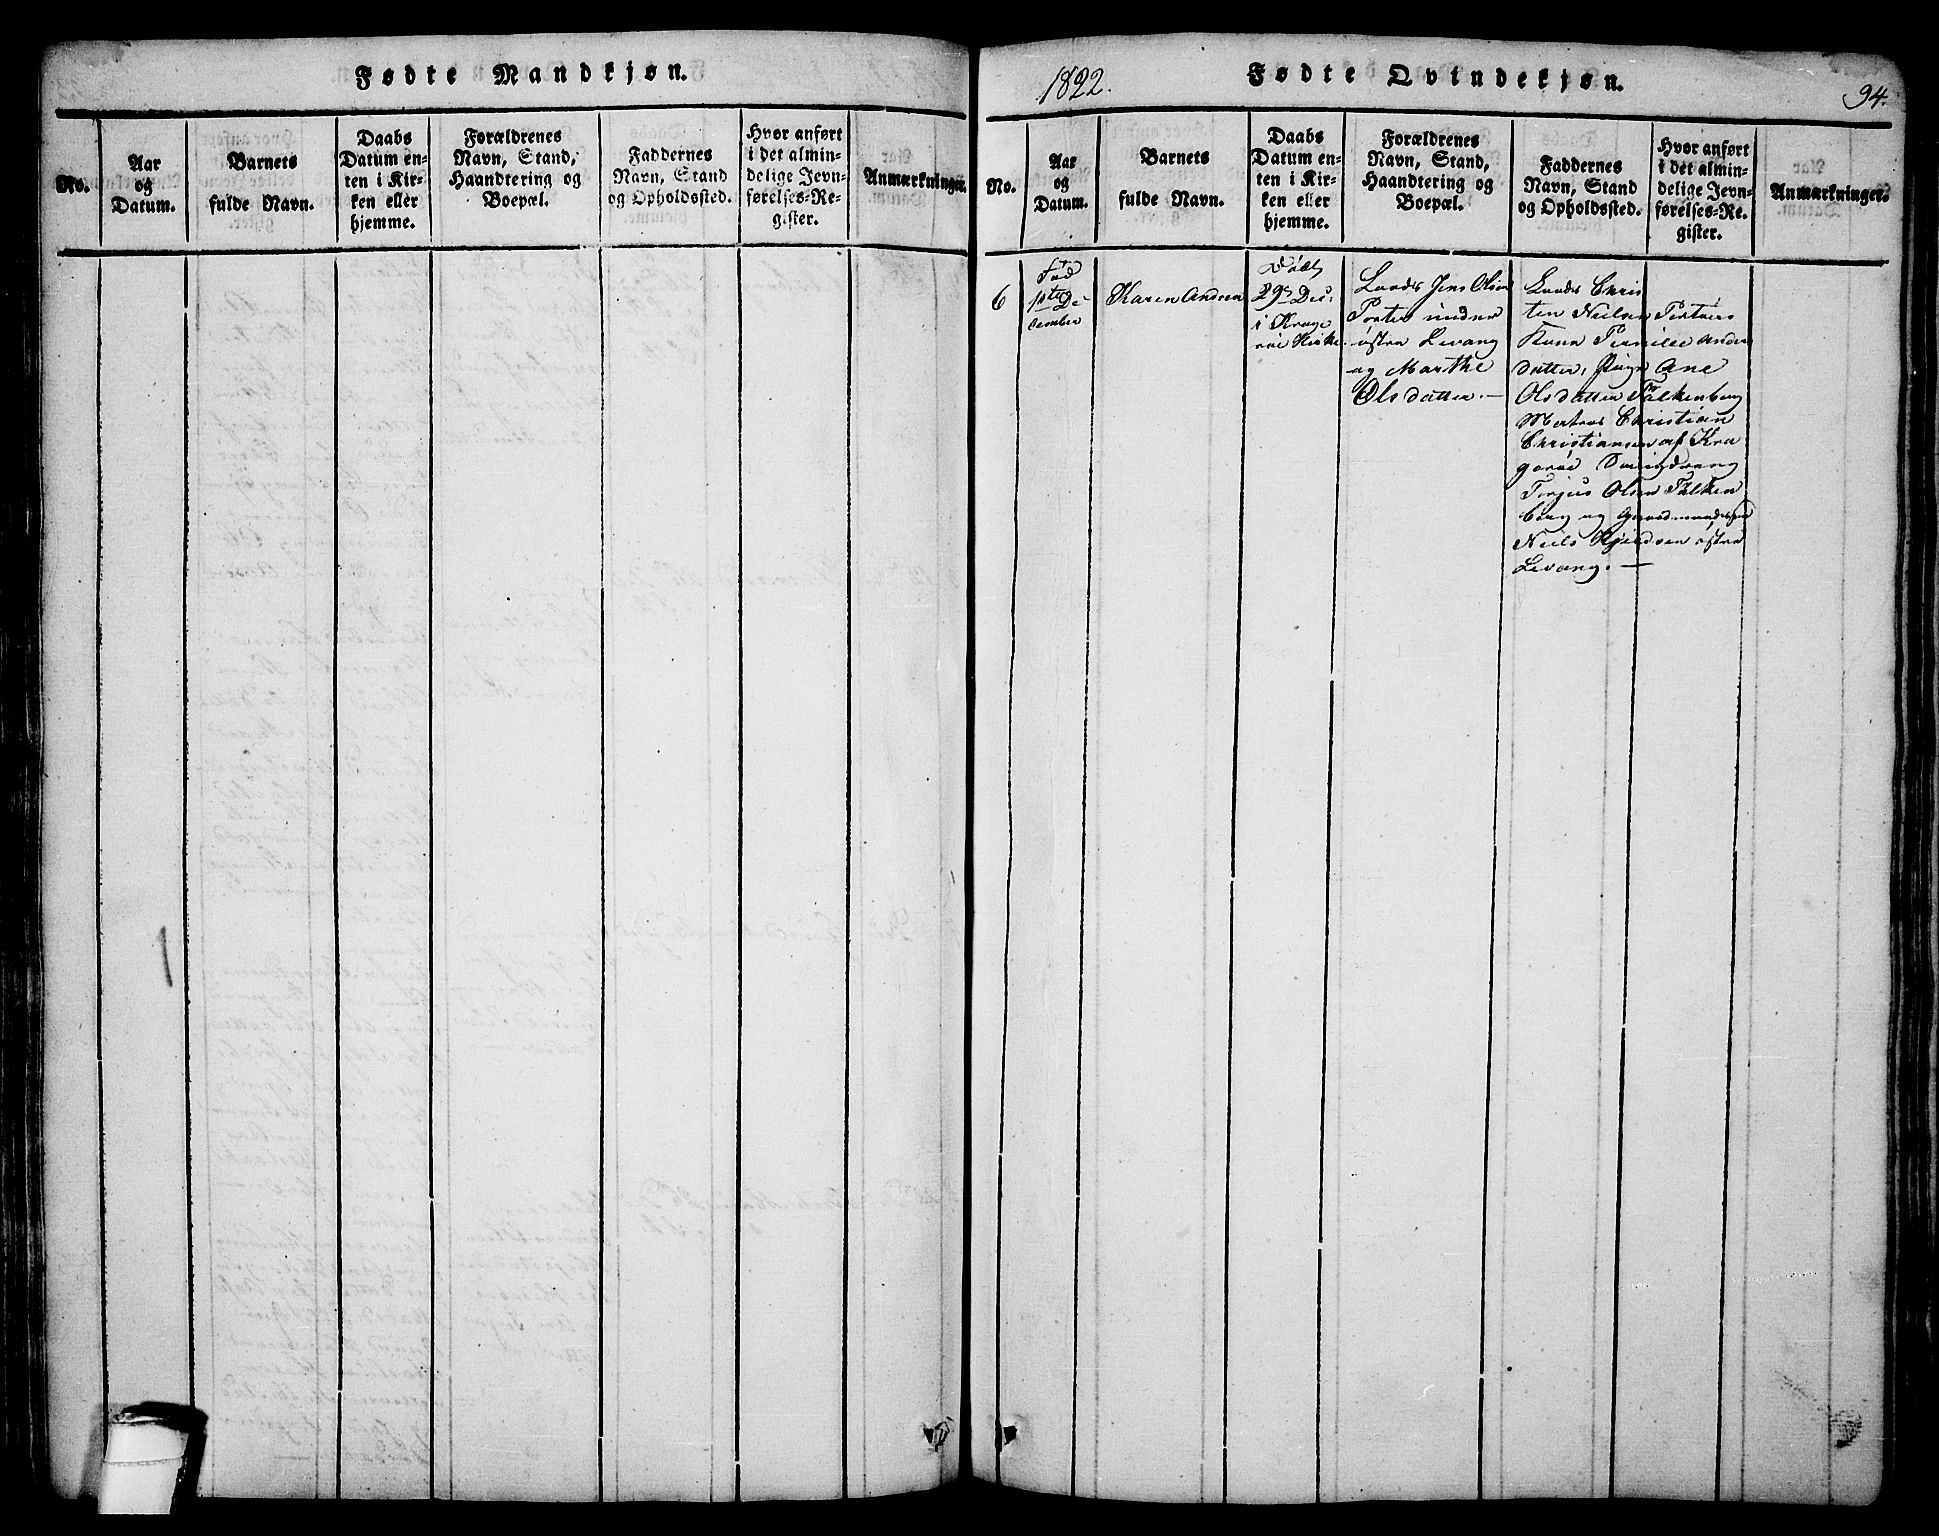 Fødte Mandkjøn.
No.
Aar
og
Datum.
Barnets
fulde Navn.
Daabs
Datum en-
ten i Kir-
ken eller
hjemme.
Forældrenes
Navn, Stand,
Haandtering og
Boepæl.
Faddernes
Navn, Stand
og Opholdssted.
Hvor anført
i det almin-
delige Jevn-
førelses-Re-
gister.
Anmærkninger.
1822.
Fødte Qvindekjøn.
94.
No.
Aar
og
Datum.
Barnets
fulde Navn.
Daabs
Datum en-
ten i Kir-
ken eller
hjemme.
Forældrenes
Navn, Stand,
Haandtering og
Boepæl.
Faddernes
Navn, Stand
og Opholdssted.
Hvor anført
i det almin-
delige Jevn-
førelses-Re-
gister.
Anmærkninger.
6
Fød
1ste De
cember
Karen Andrea
Døbt
29de Dec.
i Krage
røe Kirke.
Lods Jens Olsen
Porter under
østre Levang
og Marthe
Olsdatter. —
Lods Chris
ten Neilsen
Kone Pernille Anders
datter, Pige Ane
Olsdatter Falkenberg
Matros Christian
Christiansen af Kra
gerøe
Torjus Olsen Falken
berg og Gaardmands
Neils Kjeldsen østre
Levang. —